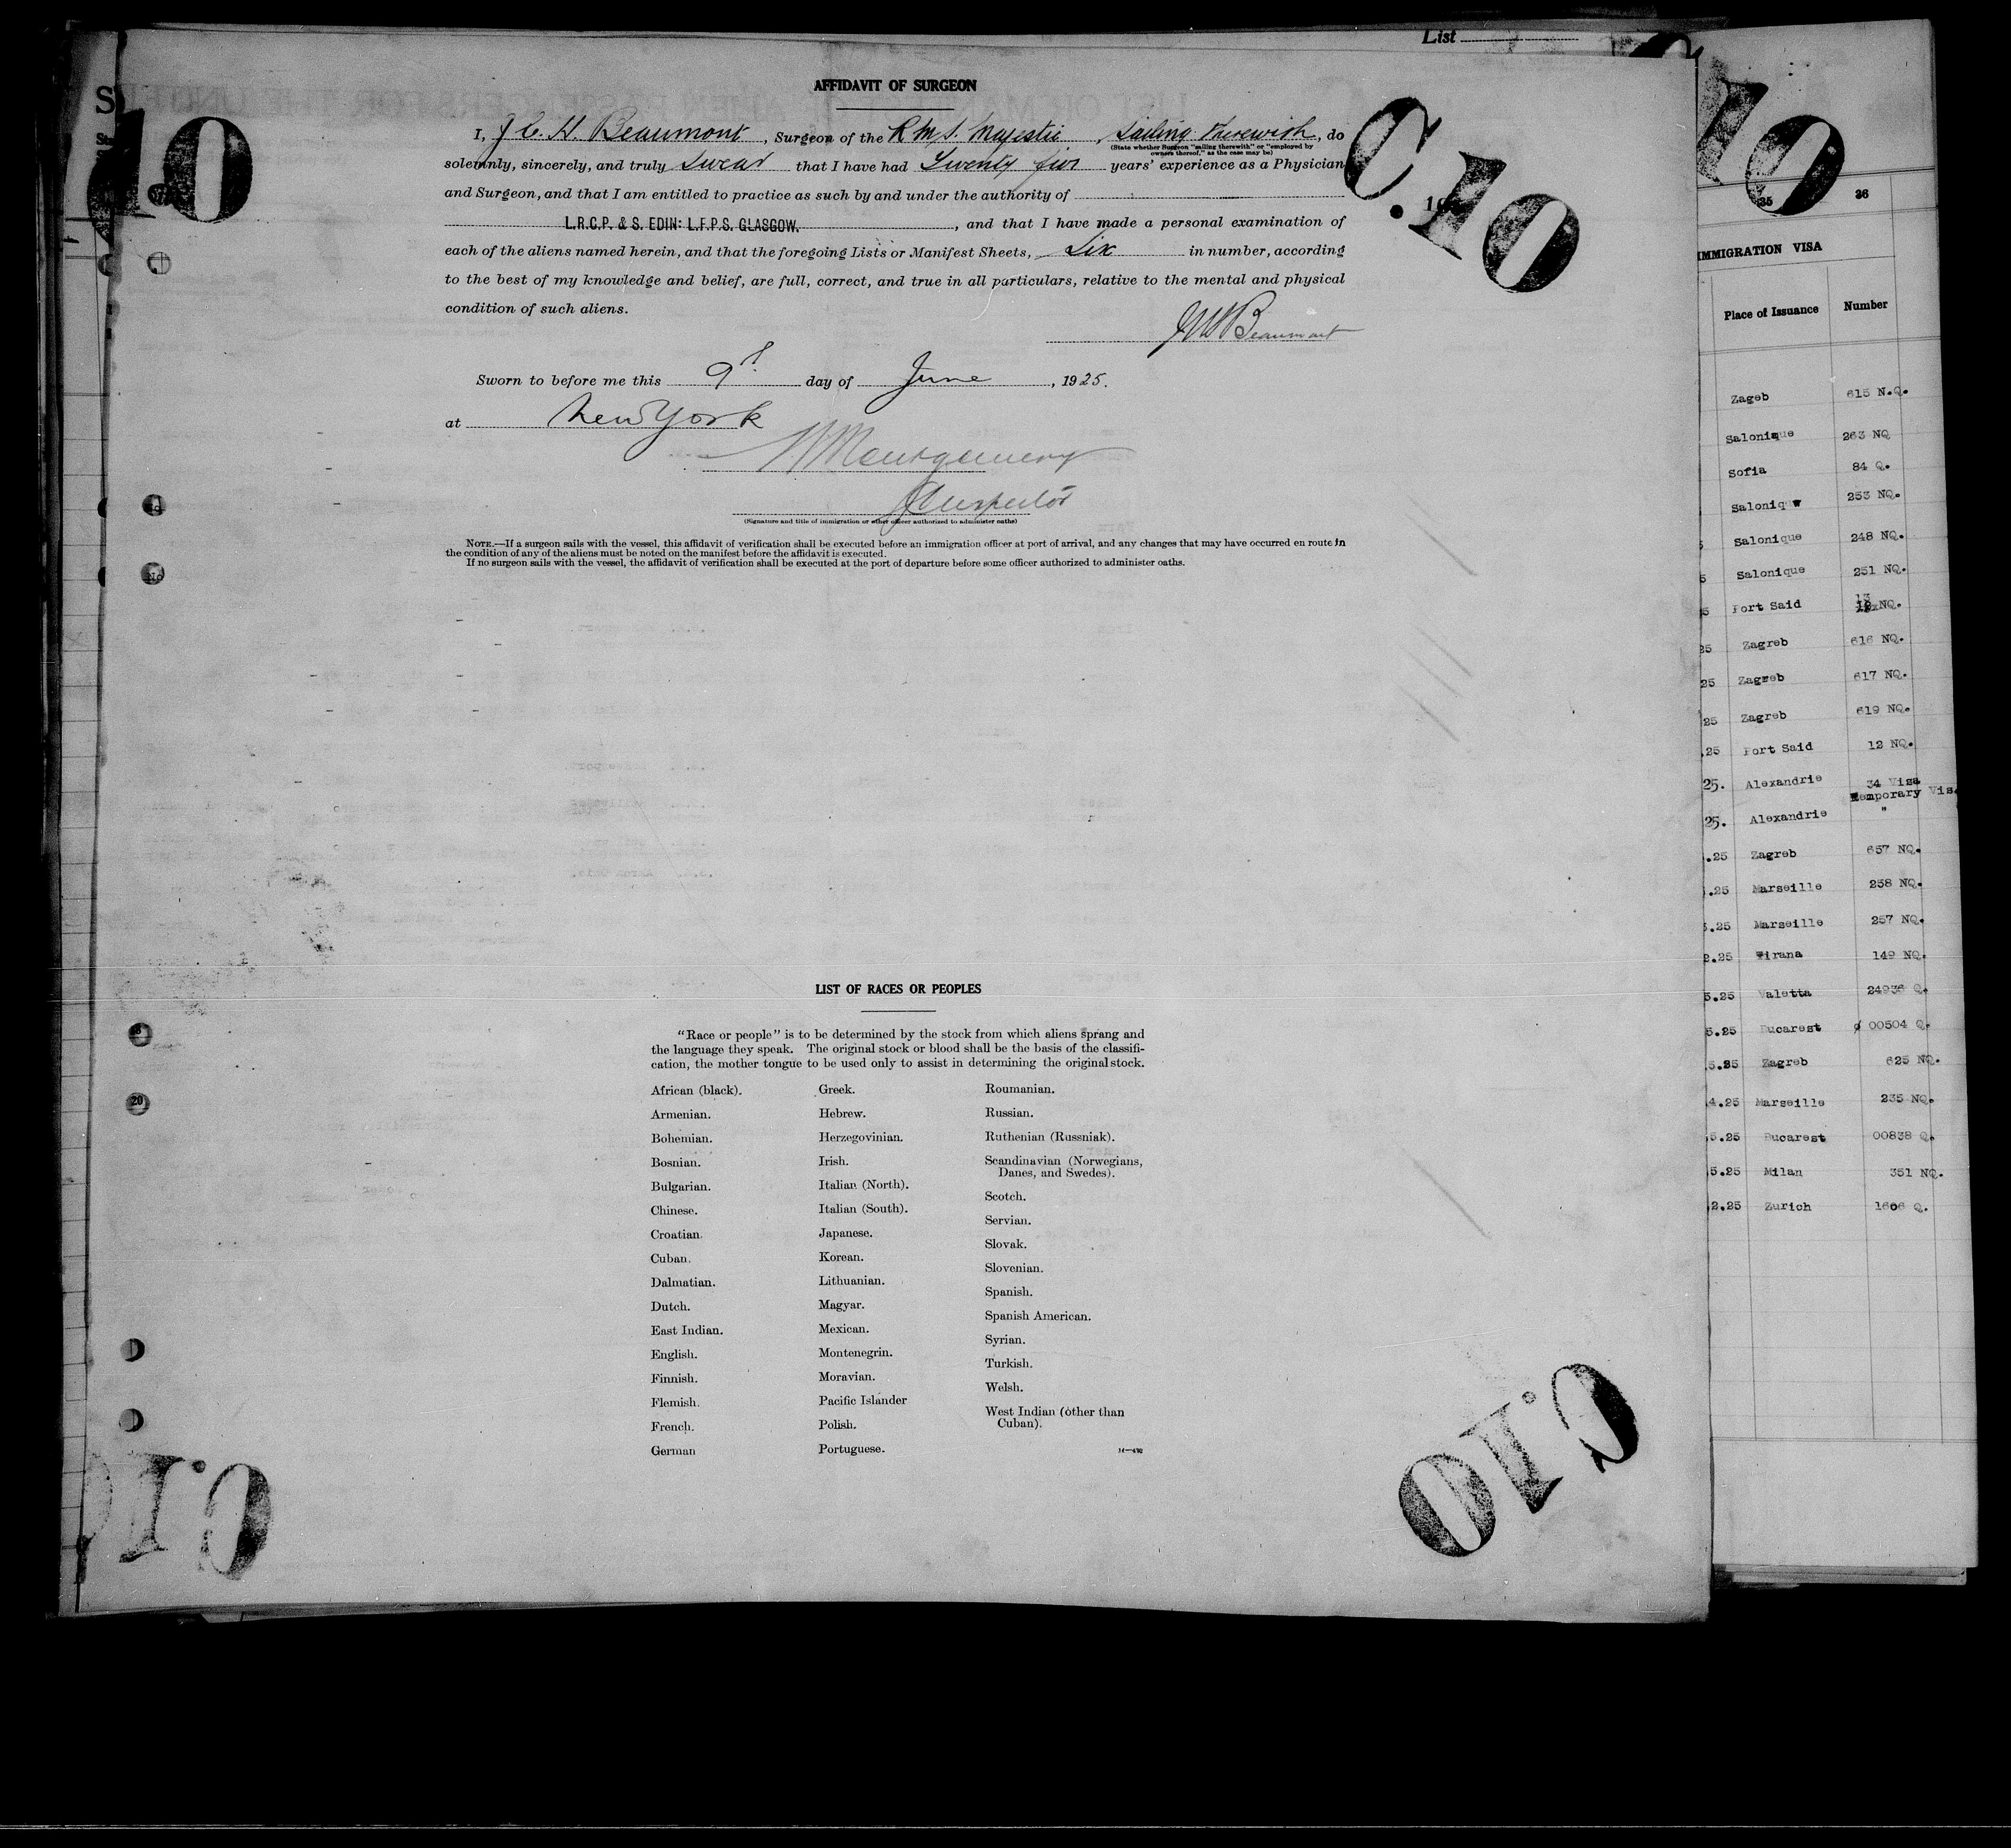 List
AFFIDAVIT OF SURGEON
I, J. C. H. Beaumont, Surgeon of the R.M.S. Majestic, Sailing therewith, do
(State whether Surgeon "sailing therewith" or "employed by
owners thereof," as the case may be)
solemnly, sincerely, and truly swear that I have had Twenty five years' experience as a Physician
and Surgeon, and that I am entitled to practice as such by and under the authority of
L.R.C.P. & S. EDIN: L.F.P.S. GLASGOW., and that I have made a personal examination of
each of the aliens named herein, and that the foregoing Lists or Manifest Sheets, Six in number, according
to the best of my knowledge and belief, are full, correct, and true in all particulars, relative to the mental and physical
condition of such aliens.
Beaumont
Sworn to before me this 9th day of June, 1925.
at New York
Montgomery
Inspector
(Signature and title of immigration or other officer authorized to administer oaths)
NOTE.—If a surgeon sails with the vessel, this affidavit of verification shall be executed before an immigration officer at port of arrival, and any changes that may have occurred en route in
the condition of any of the aliens must be noted on the manifest before the affidavit is executed.
If no surgeon sails with the vessel, the affidavit of verification shall be executed at the port of departure before some officer authorized to administer oaths.
LIST OF RACES OR PEOPLES
"Race or people" is to be determined by the stock from which aliens sprang and
the language they speak. The original stock or blood shall be the basis of the classifi-
cation, the mother tongue to be used only to assist in determining the original stock.
African (black).
Armenian.
Bohemian.
Bosnian.
Bulgarian.
Chinese.
Croatian.
Cuban.
Dalmatian.
Dutch.
East Indian.
English.
Finnish.
Flemish.
French.
German
Greek.
Hebrew.
Herzegovinian.
Irish.
Italian (North).
Italian (South).
Japanese.
Korean.
Lithuanian.
Magyar.
Mexican.
Montenegrin.
Moravian.
Pacific Islander
Polish.
Portuguese.
Roumanian.
Russian.
Ruthenian (Russniak).
Scandinavian (Norwegians,
Danes, and Swedes).
Scotch.
Servian.
Slovak.
Slovenian.
Spanish.
Spanish American.
Syrian.
Turkish.
Welsh.
West Indian (other than
Cuban).
C.10
10
C.10
C.10
10
35 36
IMMIGRATION VISA
Place of Issuance Number
Zageb 615 N.Q.
Salonique 263 NQ
Sofia 84 Q.
Salonique 253 NQ.
Salonique 248 NQ.
5 Salonique 251 NQ.
5 Port Said 13 NQ.
25 Zagreb 616 NQ.
25 Zagreb 617 NQ.
25 Zagreb 619 NQ.
.25 Port Said 12 NQ.
25. Alexandrie 34 Visa
Temporary Vis
25. Alexandrie "
.25 Zagreb 657 NQ.
.25 Marseille 258 NQ.
.25 Marseille 257 NQ.
2.25 Tirana 149 NQ.
5.25 Valetta 24936 Q.
5.25 Bucarest 00504 Q.
5.25 Zagreb 625 NQ.
4.25 Marseille 235 NQ.
5.25 Bucarest 00838 Q.
5.25 Milan 351 NQ.
2.25 Zurich 1606 Q.